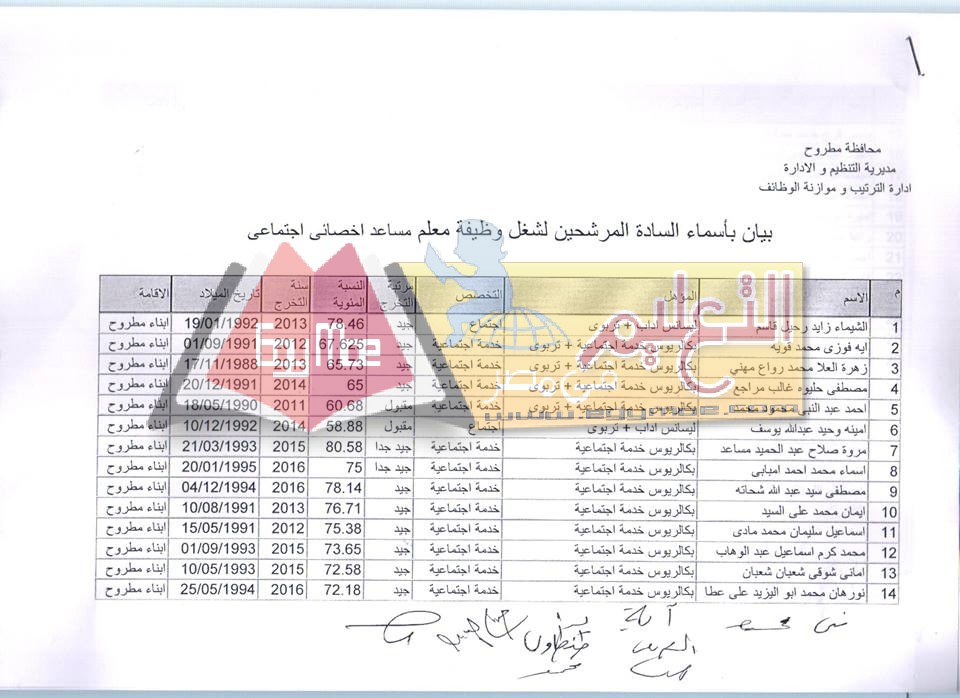 محافظة مطروح
مديرية التنظيم و الادارة
ادارة الترتيب و موازنة الوظائف
بيان بأسماء السادة المرشحين لشغل وظيفة معلم مساعد اخصائى اجتماعى
م الاسم المؤهل التخصص مرتبة التخرج النسبة المئوية سنة التخرج تاريخ الميلاد الاقامة
1 الشيماء زايد رحيل قاسم ليسانس اداب + تربوى اجتماع جيد 78.46 2013 19/01/1992 ابناء مطروح
2 ايه فوزى محمد فويه بكالريوس خدمة اجتماعية + تربوى خدمة اجتماعية جيد 67.625 2012 01/09/1991 ابناء مطروح
3 زهرة العلا محمد رواع مهني بكالريوس خدمة اجتماعية + تربوى خدمة اجتماعية جيد 65.73 2013 17/11/1988 ابناء مطروح
4 مصطفى حليوه غالب مراجع بكالريوس خدمة اجتماعية + تربوى خدمة اجتماعية جيد 65 2014 20/12/1991 ابناء مطروح
5 احمد عبد النبى محمود محمد بكالريوس خدمة اجتماعية + تربوى خدمة اجتماعية مقبول 60.68 2011 18/05/1990 ابناء مطروح
6 امينه وحيد عبدالله يوسف ليسانس اداب + تربوى اجتماع مقبول 58.88 2014 10/12/1992 ابناء مطروح
7 مروة صلاح عبد الحميد مساعد بكالريوس خدمة اجتماعية خدمة اجتماعية جيد جدا 80.58 2015 21/03/1993 ابناء مطروح
8 اسماء محمد احمد امبابى بكالريوس خدمة اجتماعية خدمة اجتماعية جيد جدا 75 2016 20/01/1995 ابناء مطروح
9 مصطفى سيد عبد الله شحاته بكالريوس خدمة اجتماعية خدمة اجتماعية جيد 78.14 2016 04/12/1994 ابناء مطروح
10 ايمان محمد على السيد بكالريوس خدمة اجتماعية خدمة اجتماعية جيد 76.71 2013 10/08/1991 ابناء مطروح
11 اسماعيل سليمان محمد مادى بكالريوس خدمة اجتماعية خدمة اجتماعية جيد 75.38 2012 15/05/1991 ابناء مطروح
12 محمد كرم اسماعيل عبد الوهاب بكالريوس خدمة اجتماعية خدمة اجتماعية جيد 73.65 2015 01/09/1993 ابناء مطروح
13 امانى شوقى شعبان شعبان بكالريوس خدمة اجتماعية خدمة اجتماعية جيد 72.58 2015 10/05/1993 ابناء مطروح
14 نورهان محمد ابو اليزيد على عطا بكالريوس خدمة اجتماعية خدمة اجتماعية جيد 72.18 2016 25/05/1994 ابناء مطروح